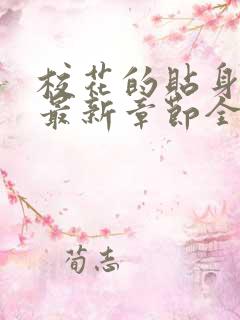 校花的贴身
最新章节全
荀志